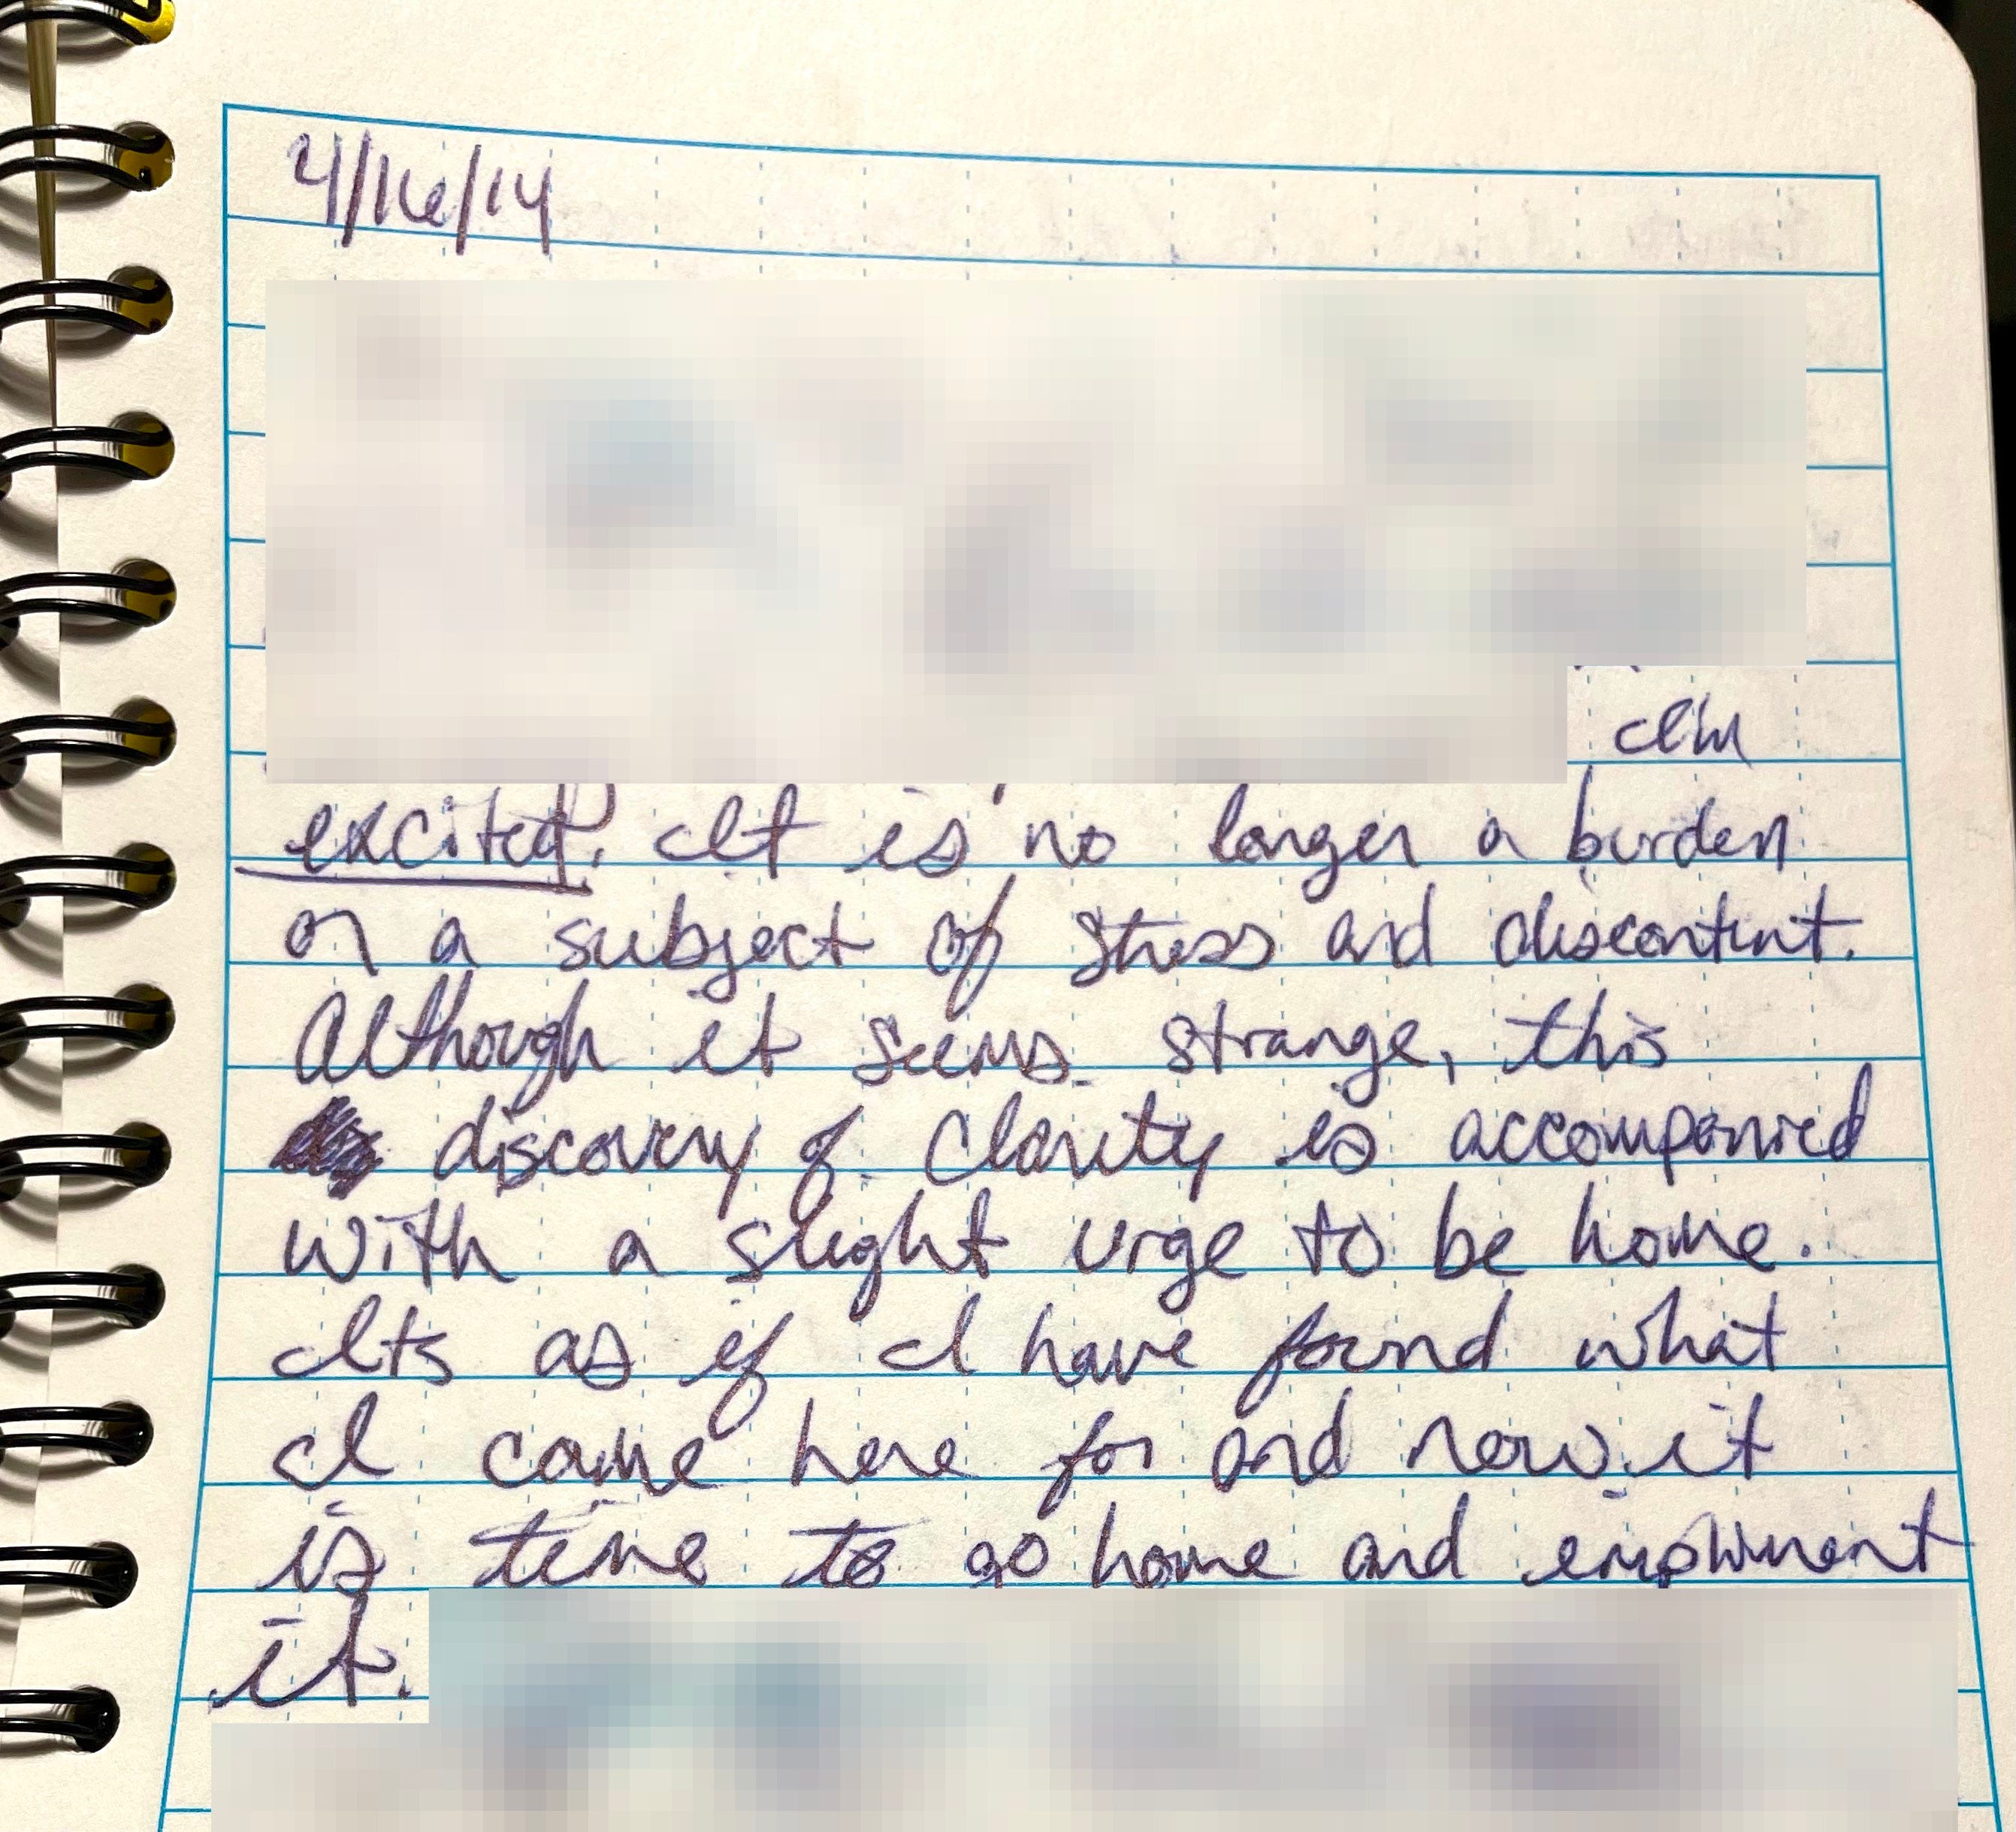 4/16/14
I'm
excited. It is no longer a burden
or a subject of stress and discontent.
Although it seems strange, this
discovery of clarity is accompanied
with a slight urge to be home.
Its as if I have found what
I came here for and now it
is time to go home and
it.